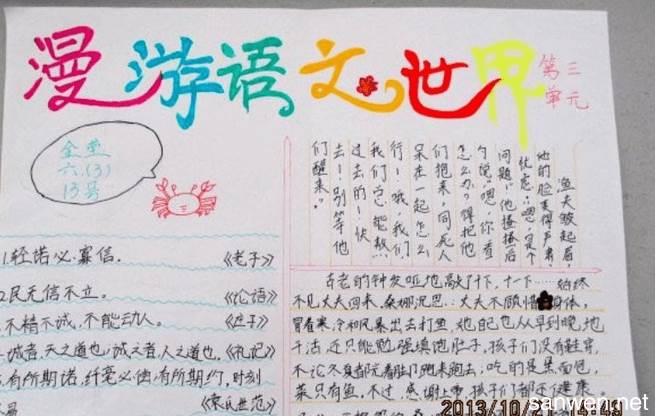 漫游语文世界
第三
单元
金堂
六.(3)
13号
渔夫皱起眉,
他的脸变得严肃,
忧虑。"嗯,是个
问题!"他搔搔后
勺说,"嗯,你看
怎么办?得把他
们抱来,同死人
呆在一起怎么
行!哦,我们,我们
我们总能熬
过去的!快
去!别等他
们醒来。"
1.轻诺必寡信. 《老子》
2民无信不立. 《论语》
不精不诚,不能动人. 《庄子》
诚者,天之道也;诚之者,人之道也. 《礼记》
有所期诺,纤毫必偿;有所期约,时刻
不易 《袁氏世范》
古老的钟发哑地敲了十下,十一下……始终
不见丈夫回来.桑娜沉思:丈夫不顾惜身体,
冒着寒冷和风暴出去打鱼,她自己也从早到晚地
干活,还只能勉强填饱肚子,孩子们没有鞋穿,
不论冬夏都光着脚跑来跑去;吃的是黑面包,
菜只有鱼.不过,感谢上帝,孩子们都还健康
2013/10/
13:43
sanwen.net